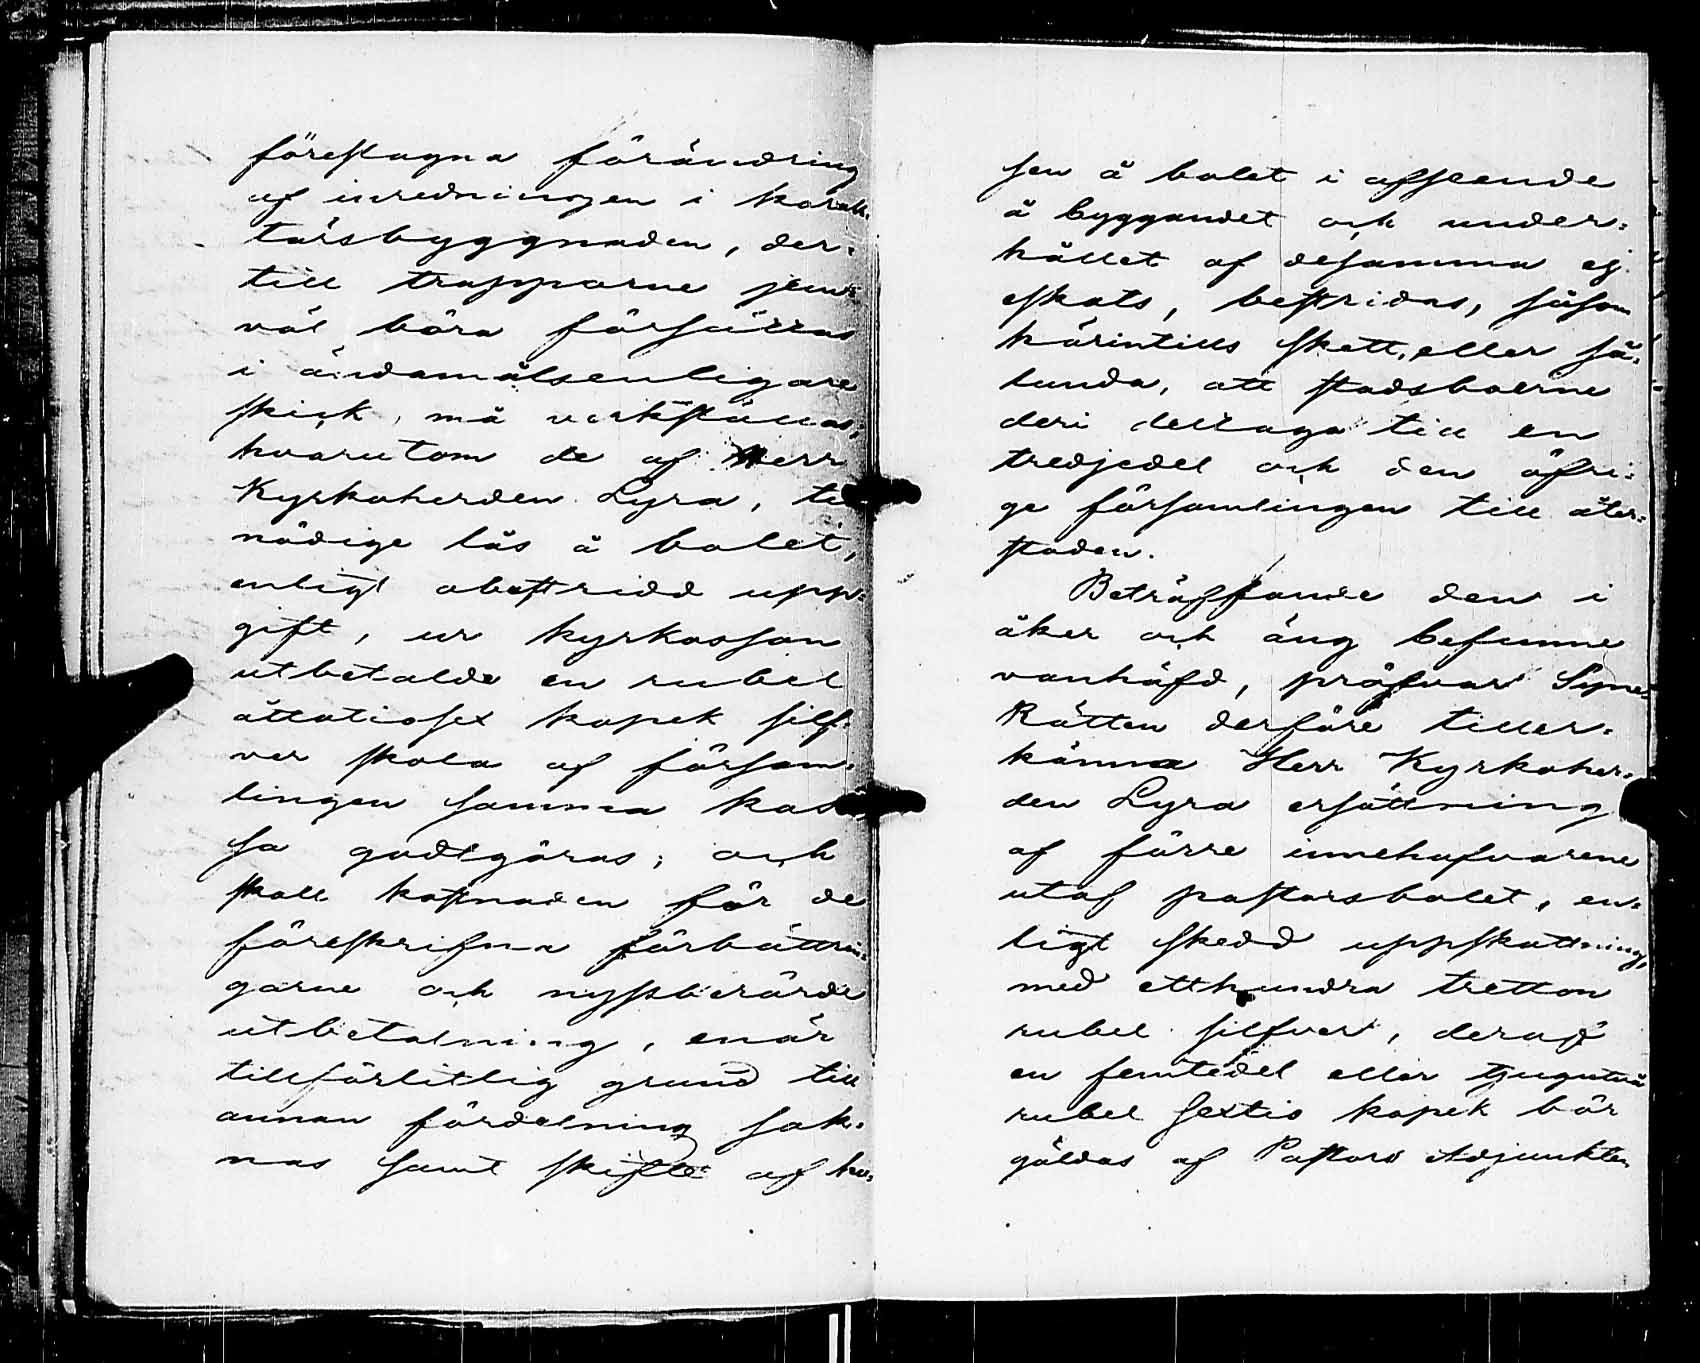 föreslagna förändring
af inredningen i karak-
tärsbyggnaden, der-
till trapporne jem-
väl böra försättas
i ändamålsenligare
skick, må verkställas;
hvarutom de af Herr
Kyrkoherden Lyra, till
nödige lås å bolet,
enligt obestridd upp-
gift, ur kyrkokassan
utbetalde en rubel
åttatiosex kopek silf-
ver skola af försam-
lingen samma kas-
sa godtgöras; och
skall kostnaden för de
föreskrifna förbättrin-
garne och nyssberörde
utbetalning, enär
tillförlitlig grund till
annan fördelning sak-
nas samt skifte af hu-
sen å bolet i afseende
å byggandet och under-
hållet af desamma ej
eskats, bestridas, såsom
härintills skett, eller så-
lunda, att stadsboerne
deri deltaga till en
tredjedel och den öfri-
ge församlingen till åter-
stoden.
Beträffande den i
åker och äng befunne
vanhäfd, pröfvar Syne-
Rätten derföre tiller-
känna Herr Kyrkoher-
den Lyra ersättning
af förre innehafvarene
utaf pastorsbolet, en-
ligt skedd uppskattning,
med etthundra tretton
rubel silfver, deraf
en femtedel eller tjugutvå
rubel sextio kopek bör
gäldas af Pastors Adjunkten